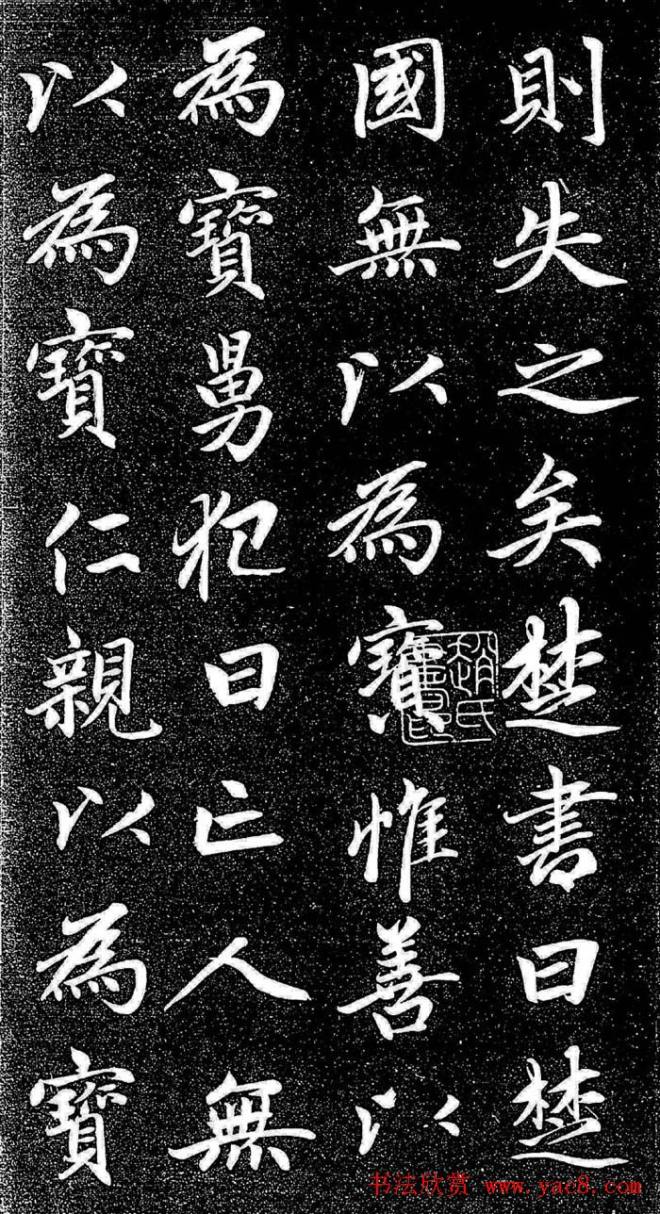 則失之矣楚書曰楚
國無以為寶惟善以
為寶舅犯曰亡人無
以為寶仁親以為寶
书法欣赏 www.yac8.com